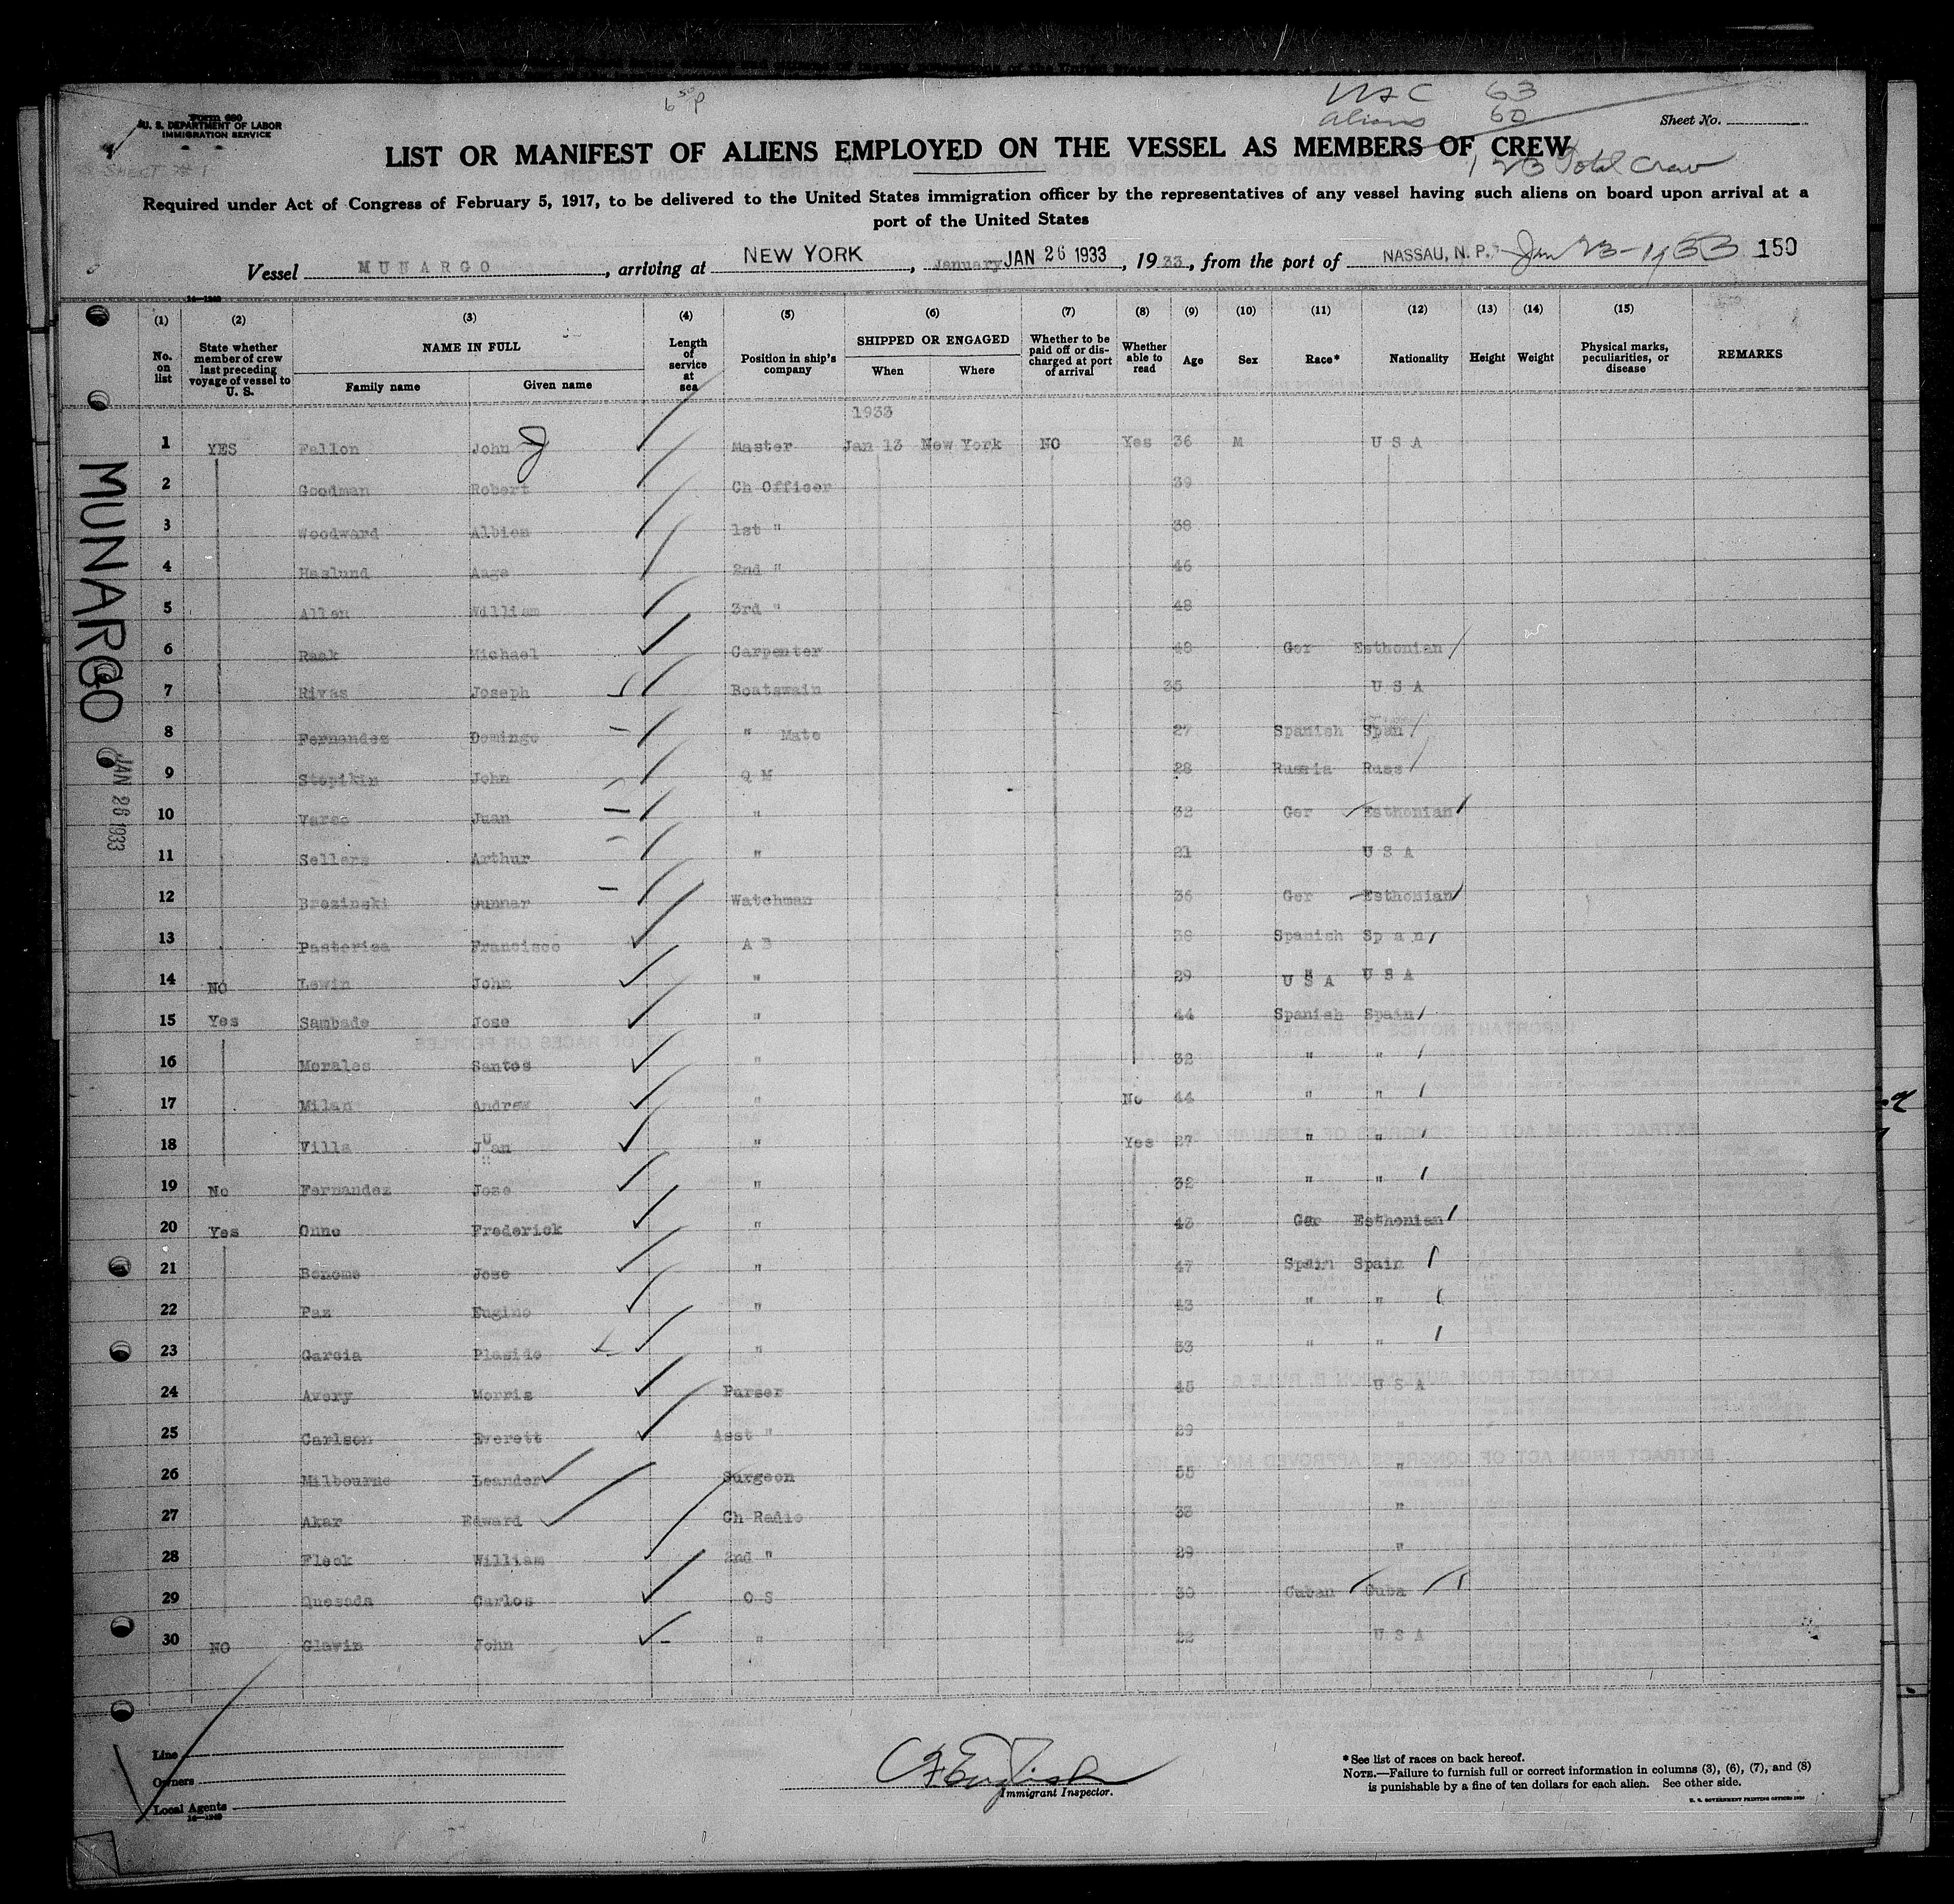 6 30 P
USC 63
Aliens 60
123 Total Crew
Form 680
U. S. DEPARTMENT OF LABOR
IMMIGRATION SERVICE
SHEET # 1
Sheet No.
LIST OR MANIFEST OF ALIENS EMPLOYED ON THE VESSEL AS MEMBERS OF CREW
Required under Act of Congress of February 5, 1917, to be delivered to the United States immigration officer by the representatives of any vessel having such aliens on board upon arrival at a
port of the United States
Vessel MUNARGO, arriving at NEW YORK, January JAN 26 1933, 1933, from the port of NASSAU, N. P. Jan 23-1933 150
(1) (2) (3) (4) (5) (6) (7) (8) (9) (10) (11) (12) (13) (14) (15)
No. on list
State whether member of crew last preceding voyage of vessel to U. S.
NAME IN FULL
Family name Given name
Length of service at sea
Position in ship's company
SHIPPED OR ENGAGED
When Where
Whether to be paid off or discharged at port of arrival
Whether able to read
Age
Sex
Race*
Nationality
Height
Weight
Physical marks, peculiarities, or disease
REMARKS
1933
1 YES Fallon John J Master Jan 13 New York NO Yes 36 M U S A
2 Goodman Robert Ch Officer 39
3 Woodward Albion 1st " 38
4 Haslund Aage 2nd " 46
5 Allen William 3rd " 48
6 Raak Michael Carpenter 48 Ger Esthonian
7 Rivas Joseph Boatswain 35 U S A
8 Fernandez Domingo " Mate 27 Spanish Span
9 Stepikin John Q M 28 Russia Russ
10 Juan " 32 Ger Esthonian
11 Sellers Arthur " 21 U S A
12 Brozinski Gunnar Watchman 36 Ger Esthonian
13 Pasteriza Francisco A B 38 Spanish Span
14 NO Lewin John " 29 U S A U S A
15 Yes Sambade Jose " 44 Spanish Spain
16 Morales Santos " 32 " "
17 Milan Andrew " No 44 " "
18 Villa Juan " Yes 27 " "
19 No Fernandez Jose " 32 " "
20 Yes Onno Frederick " 43 Ger Esthonian
21 Bonome Jose " 47 Spain Spain
22 Paz Eugino " 43 " "
23 Garcia Plasido " 33 " "
24 Avery Morris Purser 45 U S A
25 Carlson Everett Asst " 29 "
26 Milbourne Leander Surgeon 55 "
27 Akar Edward Ch Radio 33 "
28 Fleck William 2nd " 29 "
29 Quesada Carlos O S 30 Cuban Cuba
30 NO Glavin John " 22 U S A
MUNARGO
JAN 26 1933
Line
Owners
Local Agents
16—1240
Immigrant Inspector.
*See list of races on back hereof.
NOTE.—Failure to furnish full or correct information in columns (3), (6), (7), and (8)
is punishable by a fine of ten dollars for each alien. See other side.